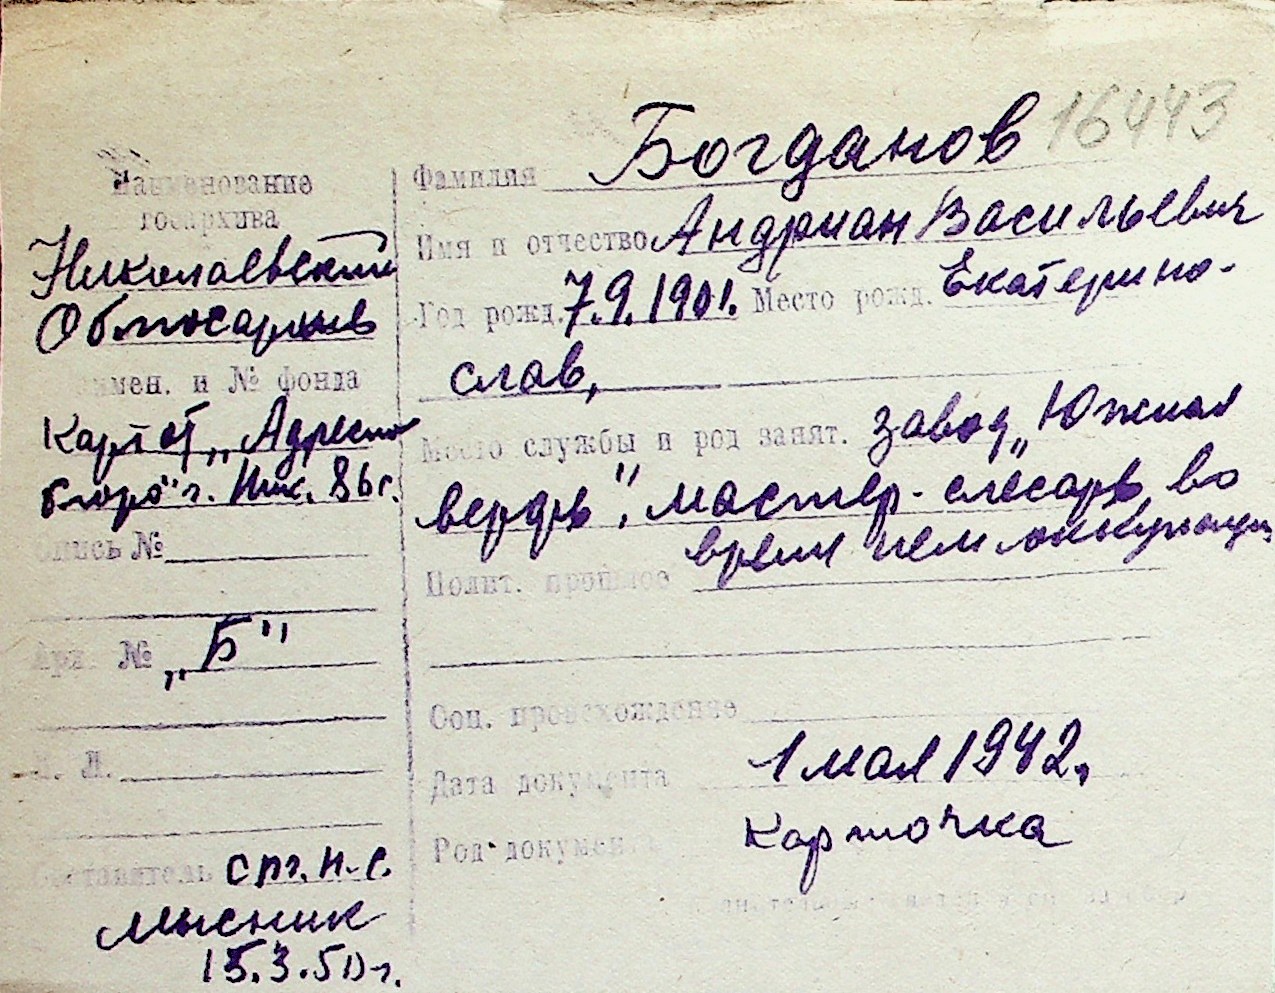 16443
Наименование
госархива
Николаевский
Облгосархив
наимен. и № фонда
Карт от „Адресно
бюро" г. Ник. 86 г.
Опись №
Арх. № „Б"
Л. Л.
Составитель спг. н-с.
Мысник
15.3.50 г.
Фамилия Богданов
Имя и отчество Андриан Васильевич
Год рожд. 7.9.1901. Место рожд. Екатерино-
слав,
Место службы и род занят. завод „Южная
верфь", мастер-слесарь во
время нем оккупации
Полит. прошлое
Соц. происхождение
Дата документа 1 мая 1942.
Род документа Карточка